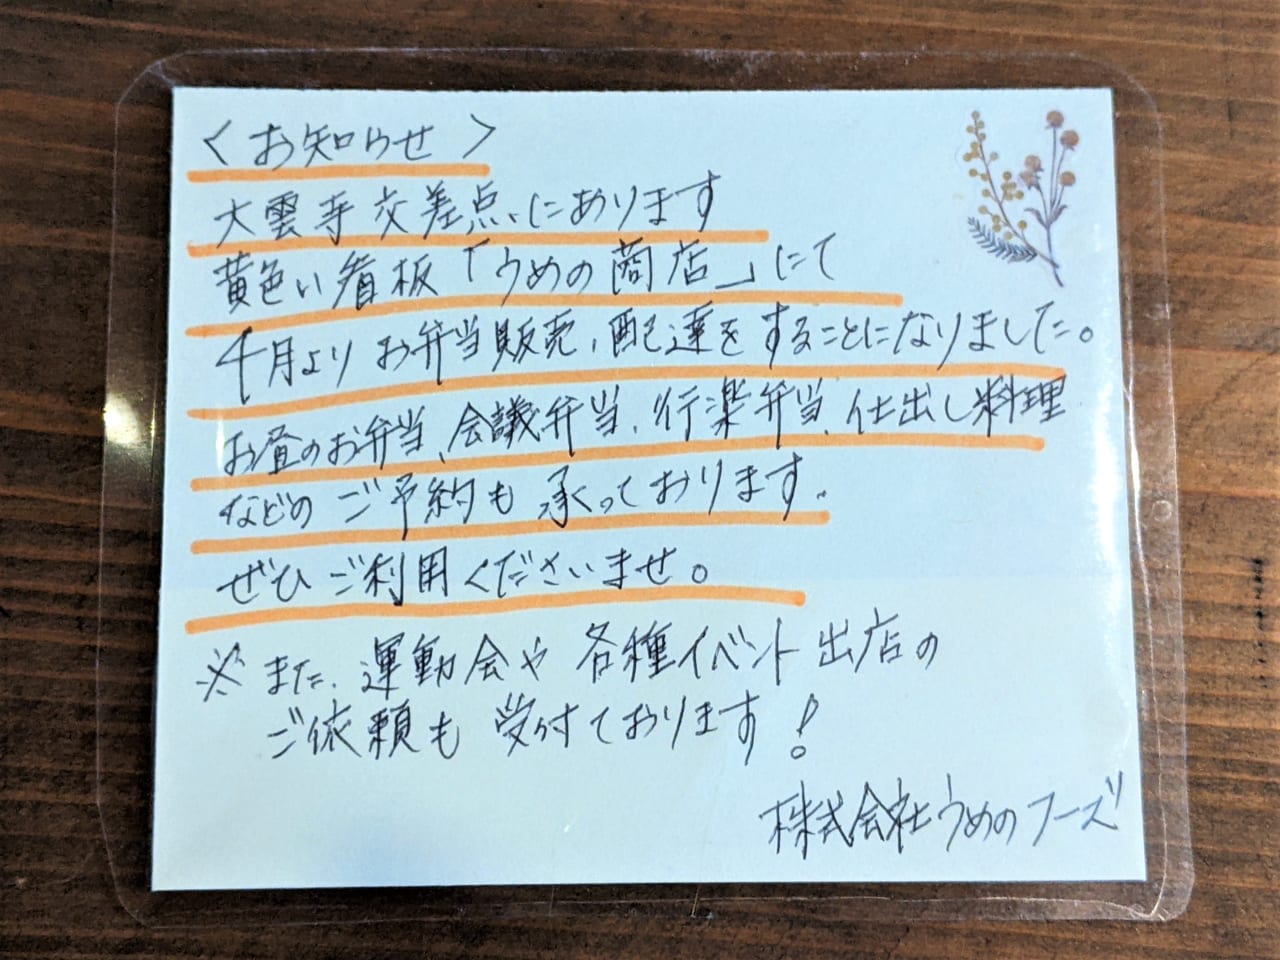 ＜お知らせ＞
大雲寺交差点にあります
黄色い看板「うめの商店」にて
4月よりお弁当販売、配達をすることになりました。
お昼のお弁当、会議弁当、行楽弁当、仕出し料理
などのご予約も承っております。
ぜひご利用くださいませ。
※また、運動会や各種イベント出店の
ご依頼も受付ております!
株式会社うめのフーズ